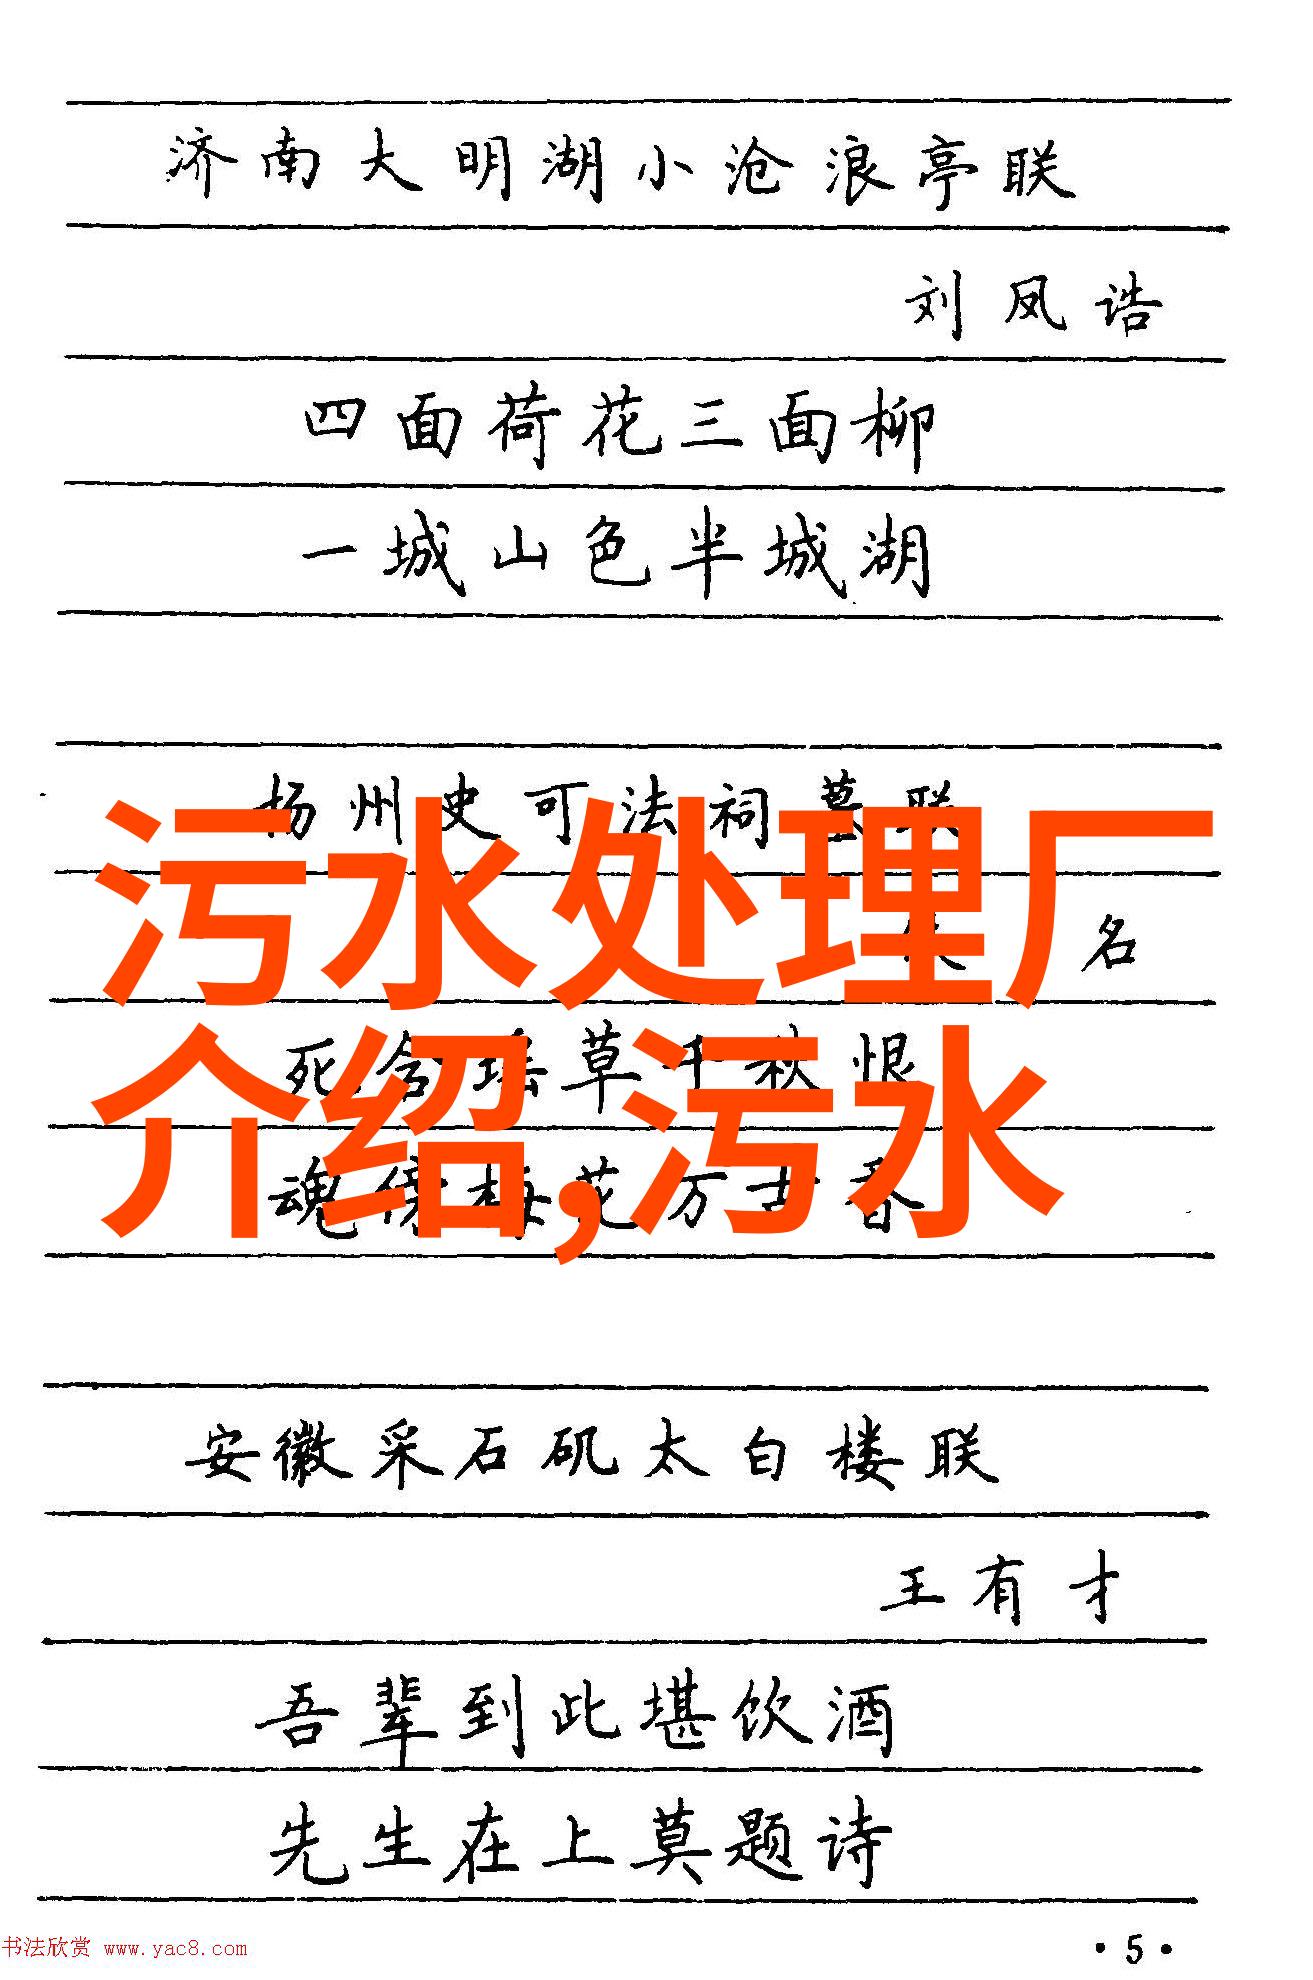 济南大明湖小沧浪亭联
刘凤诰
四面荷花三面柳
一城山色半城湖
扬州史可法祠墓联
名
污水处理厂
死含瑶草千秋恨
介绍,污水
魂傍梅花万古香
安徽采石矶太白楼联
王有才
吾辈到此堪饮酒
先生在上莫题诗
书法欣赏 www.yac8.com
·5·